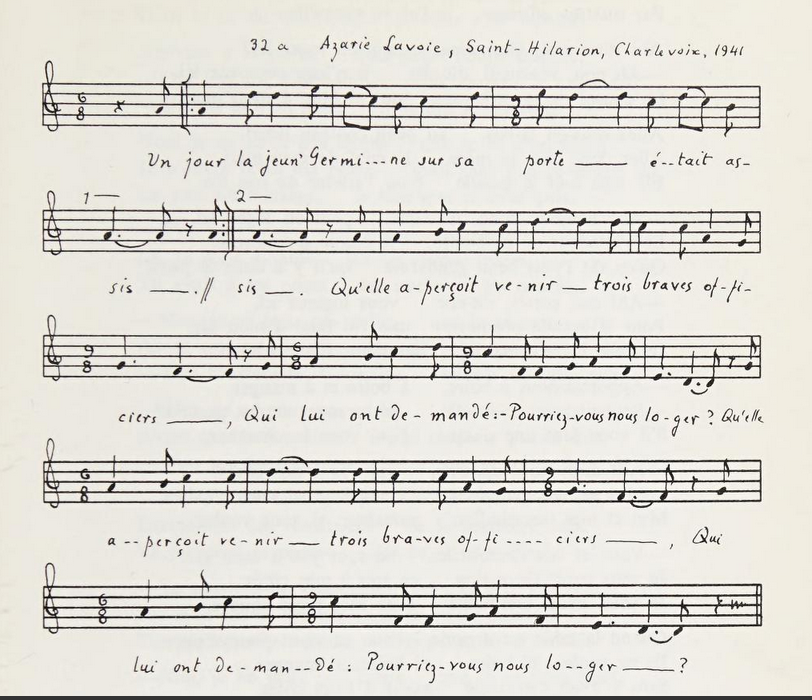 32 a Azarie Lavoie, Saint-Hilarion, Charlevoix, 1941
Un jour la jeun' Germi---ne sur sa porte —— é--tait as-
1 — 2 —
sis ——.// sis ——. Qu'elle a-perçoit ve-nir — trois braves of-fi-
ciers ——, Qui lui ont de-mandé:-Pourriez-vous nous lo-ger? Qu'elle
a--perçoit ve-nir — trois bra-ves of-fi---- ciers ——, Qui
lui ont de-man--dé : Pourriez-vous nous lo--ger ——?